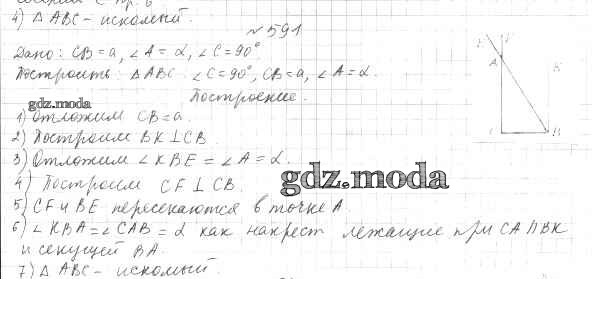 4) △ ABC - искомый.
№ 591
Дано: CB = a, ∠A = α, ∠C = 90°.
Построить: △ABC: ∠C = 90°, CB = a, ∠A = α.
Построение.
gdz.moda
1) Отложим CB = a.
2) Построим BK ⊥ CB.
3) Отложим ∠KBE = ∠A = α.
4) Построим CF ⊥ CB.
gdz.moda
5) CF и BE пересекаются в точке A.
6) ∠KBA = ∠CAB = α как накрест лежащие при CA ∥ BK
и секущей BA.
7) △ ABC - искомый.
E F
A K
C B